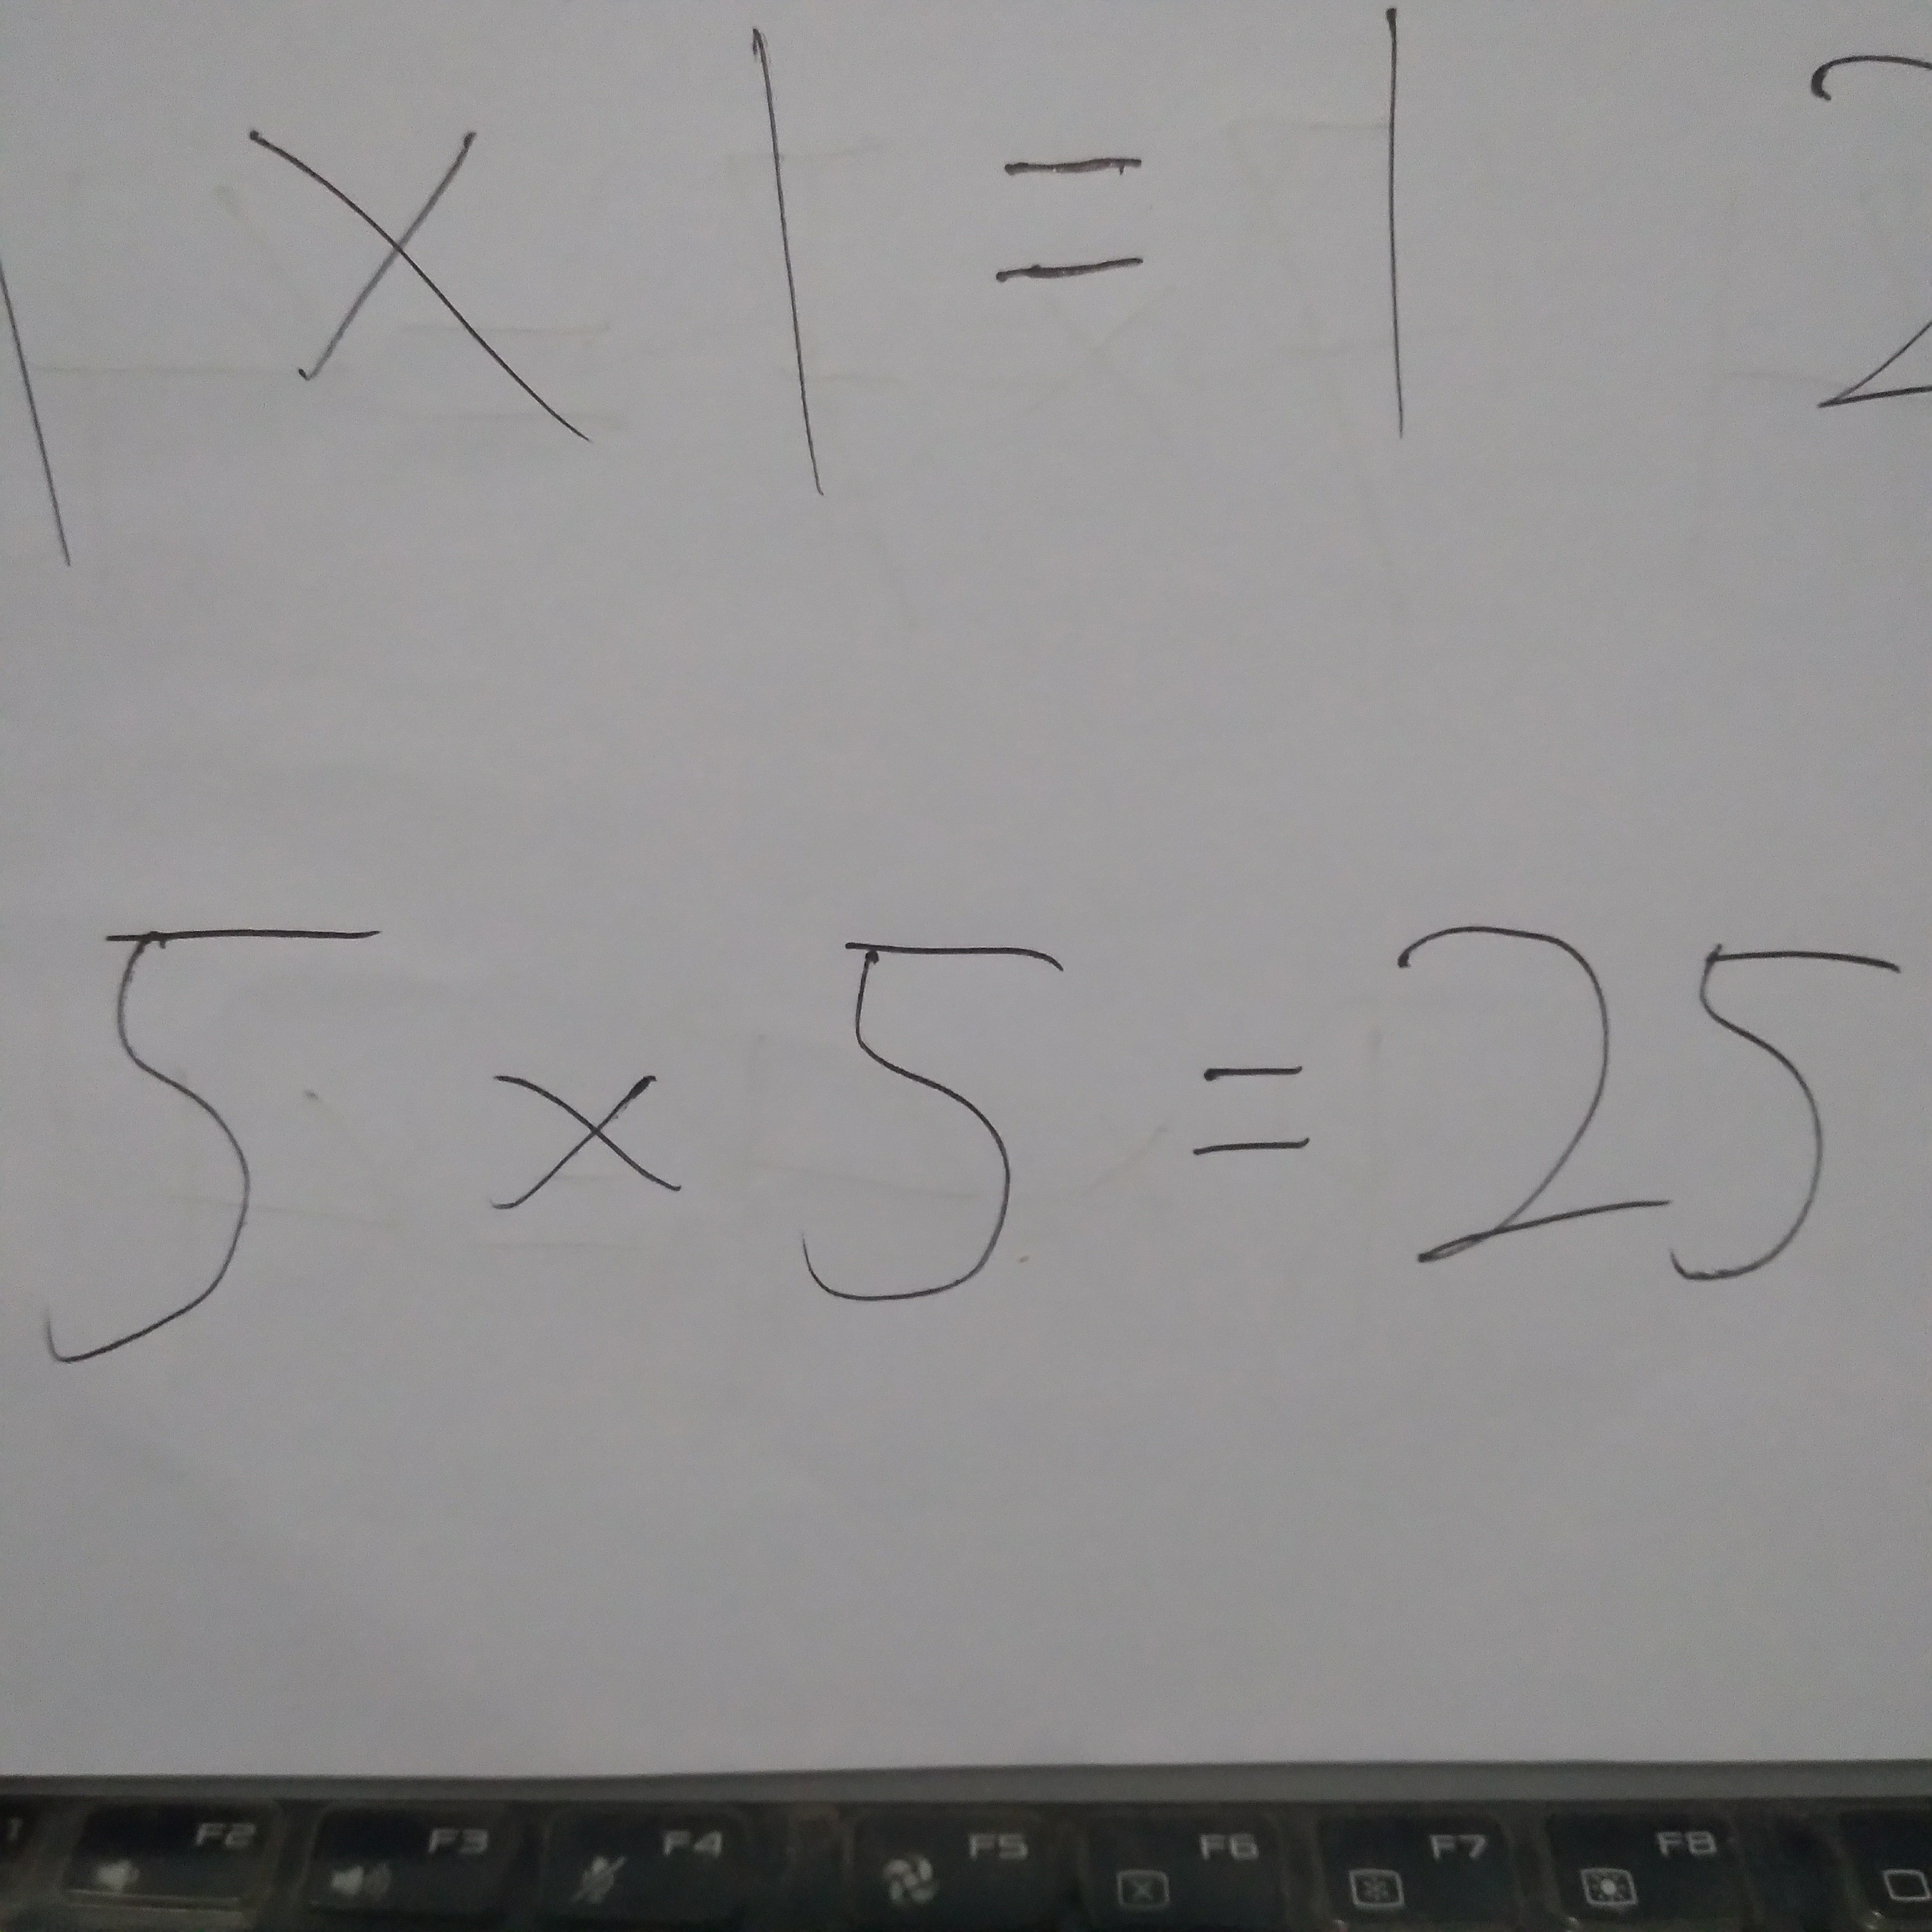 1 × 1 = 1 2
5 × 5 = 25
F2 F3 F4 F5 F6 F7 F8